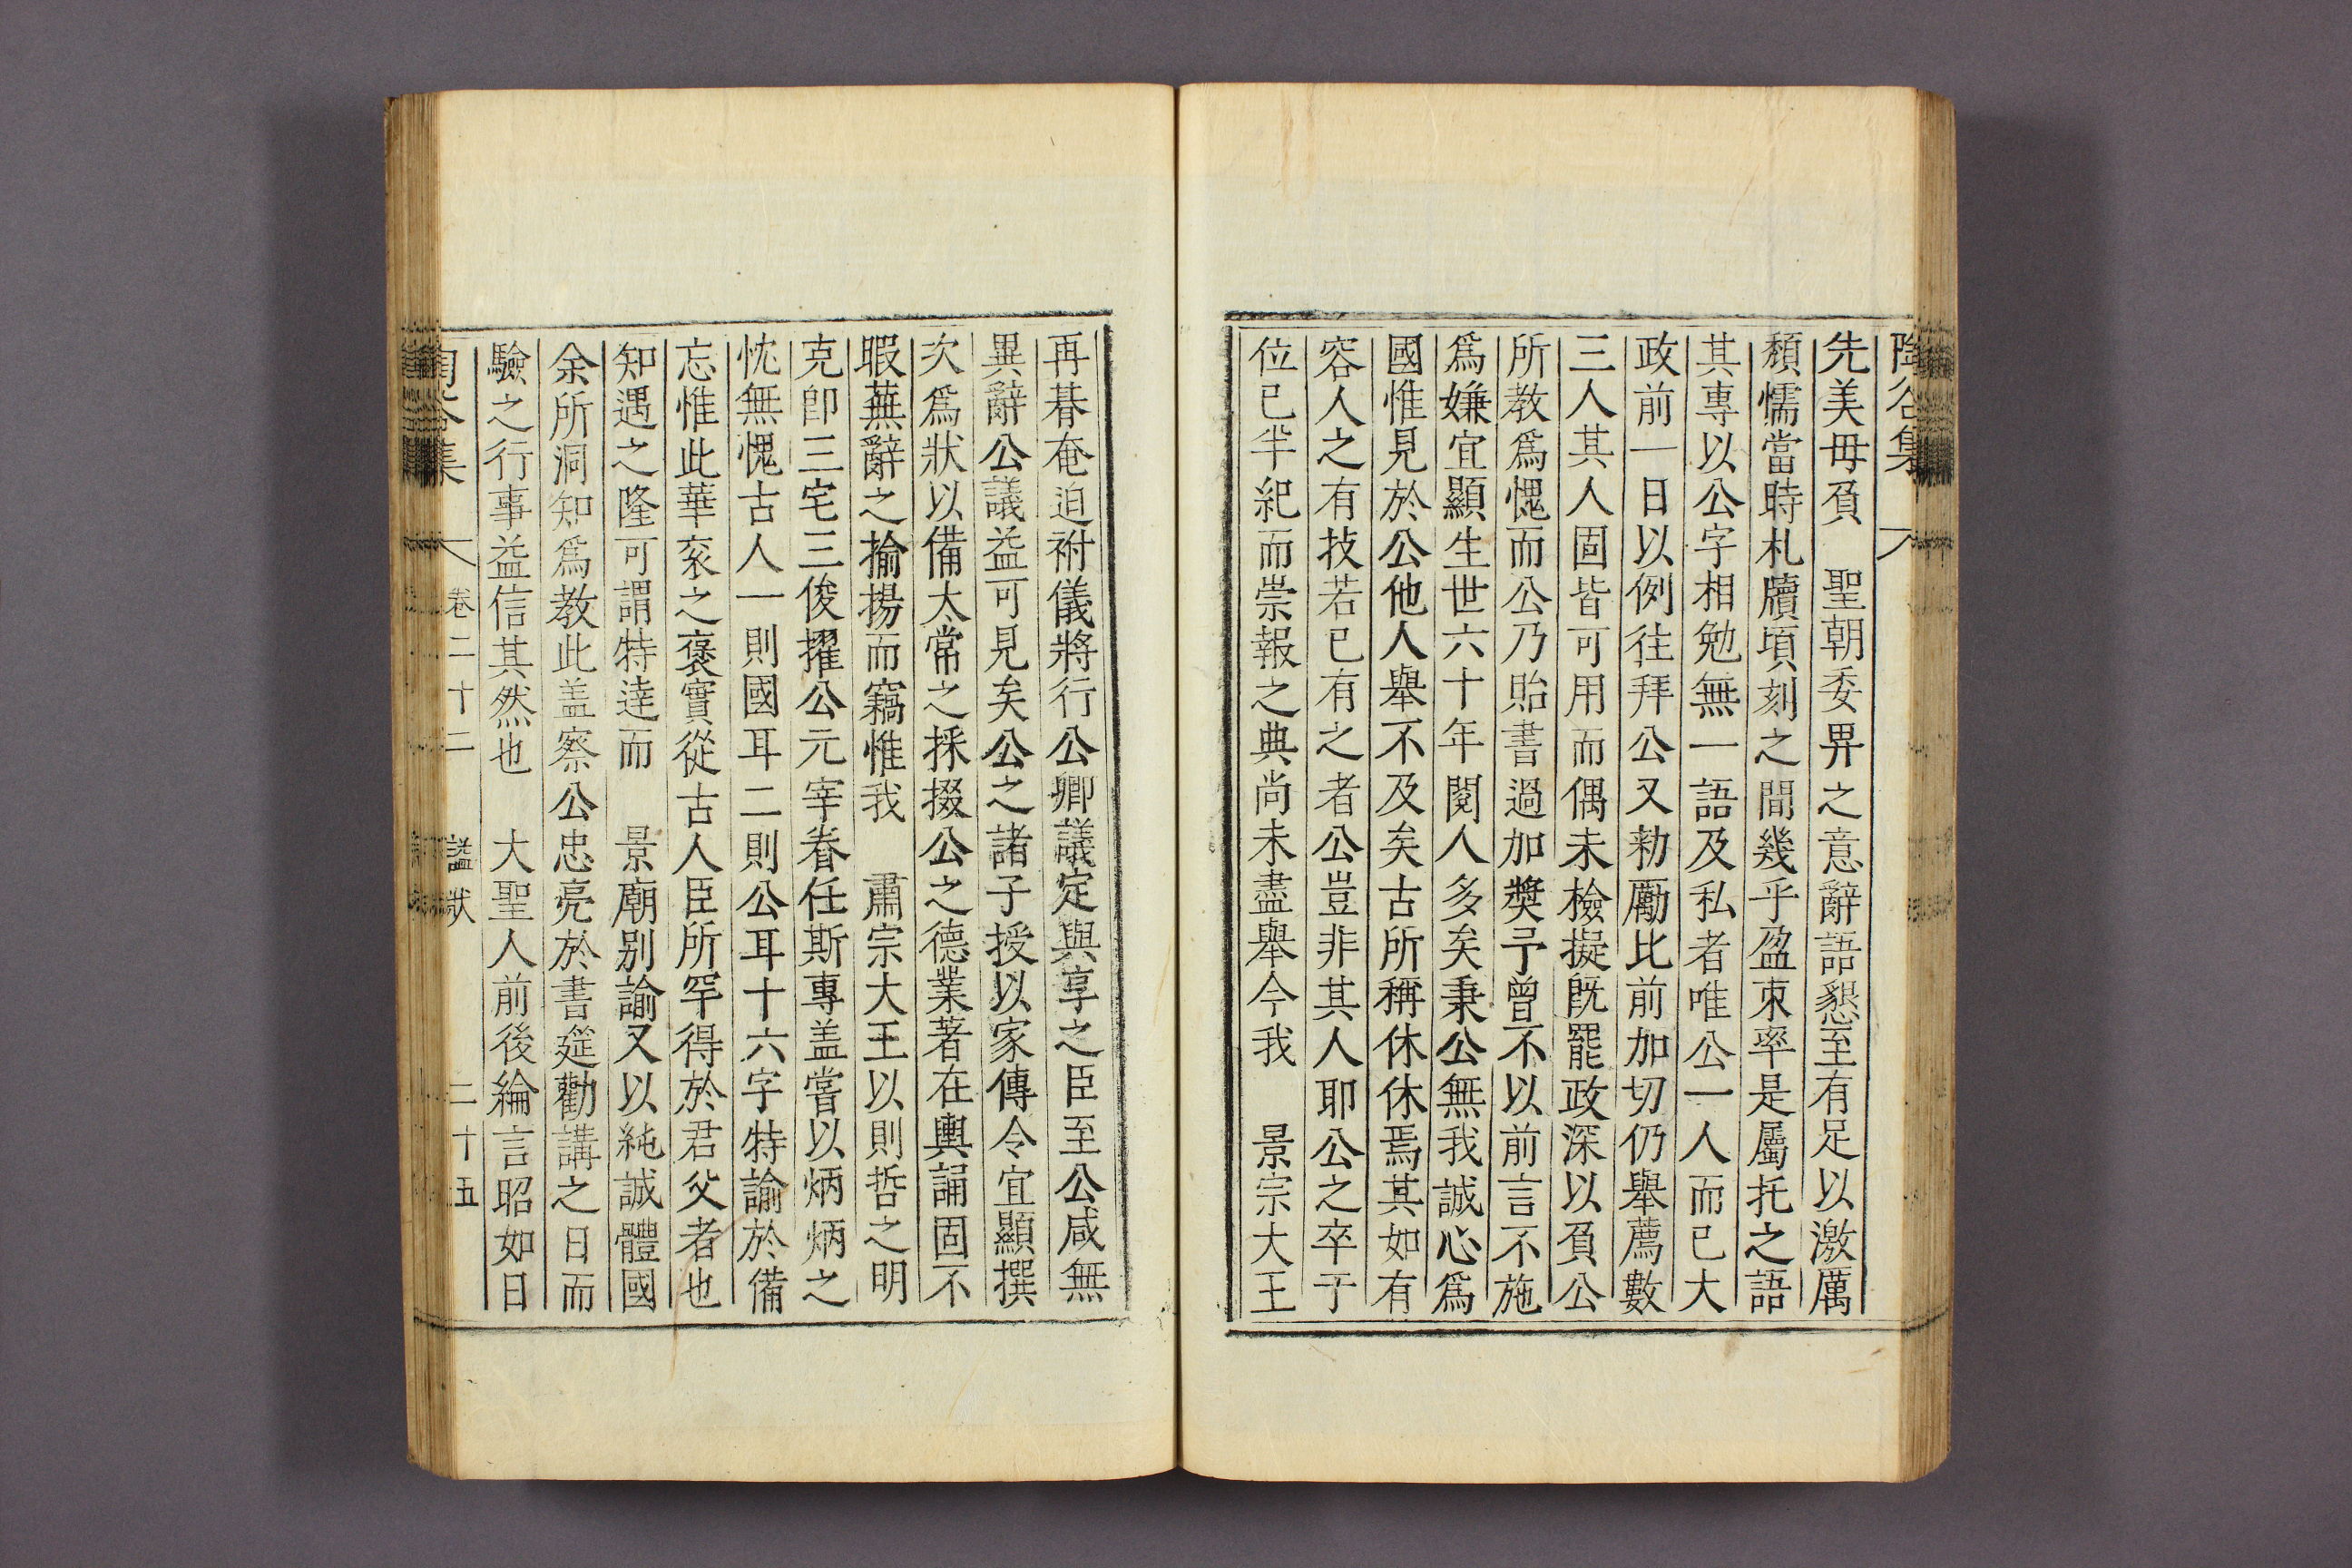 陶谷集
先美毋負 聖朝委畀之意辭語懇至有足以激厲
頹懦當時札牘頃刻之間幾乎盈束率是屬托之語
其專以公字相勉無一語及私者唯公一人而已大
政前一日以例往拜公又勑勵比前加切仍舉薦數
三人其人固皆可用而偶未檢擬旣罷政深以負公
所教爲愧而公乃貽書過加奬予曾不以前言不施
爲嫌宜顯生世六十年閱人多矣秉公無我誠心爲
國惟見於公他人舉不及矣古所稱休休焉其如有
容人之有技若已有之者公豈非其人耶公之卒于
位已半紀而崇報之典尚未盡舉今我 景宗大王
再朞奄迫祔儀將行公卿議定與享之臣至公咸無
異辭公議益可見矣公之諸子授以家傳令宜顯撰
次爲狀以備太常之採掇公之德業著在輿誦固不
暇蕪辭之揄揚而竊惟我 肅宗大王以則哲之明
克卽三宅三俊擢公元宰眷任斯專盖嘗以炳炳之
忱無愧古人一則國耳二則公耳十六字特諭於備
忘惟此華衮之褒實從古人臣所罕得於君父者也
知遇之隆可謂特達而 景廟别諭又以純誠體國
余所洞知爲教此盖察公忠亮於書筵勸講之日而
驗之行事益信其然也 大聖人前後綸言昭如日
陶谷集 卷二十二 謚狀 二十五